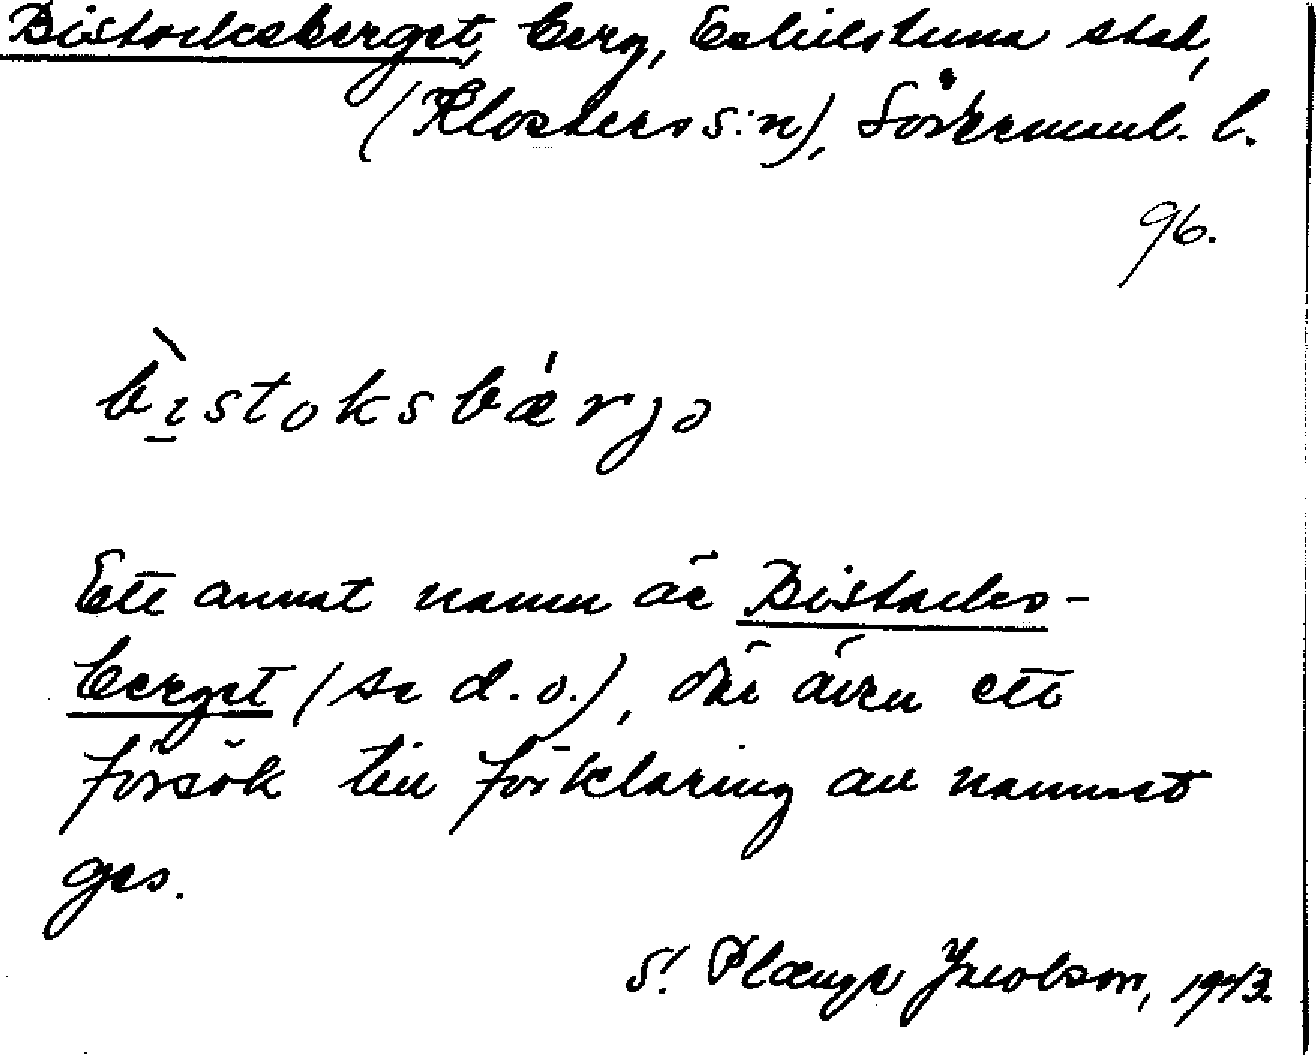 Bistocksberget, berg, Eskilstuna stad,
(Klosters s:n), Södermanl. l.
96.
bìstoksbærjə
Ett annat namn är Bistacks-
berget (se d. o.), där även ett
försök till förklaring av namnet
ges.
S. Plænge Jacobson, 1943.